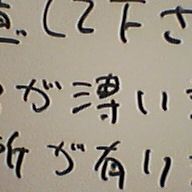 して下さ
が溥い
所が有り